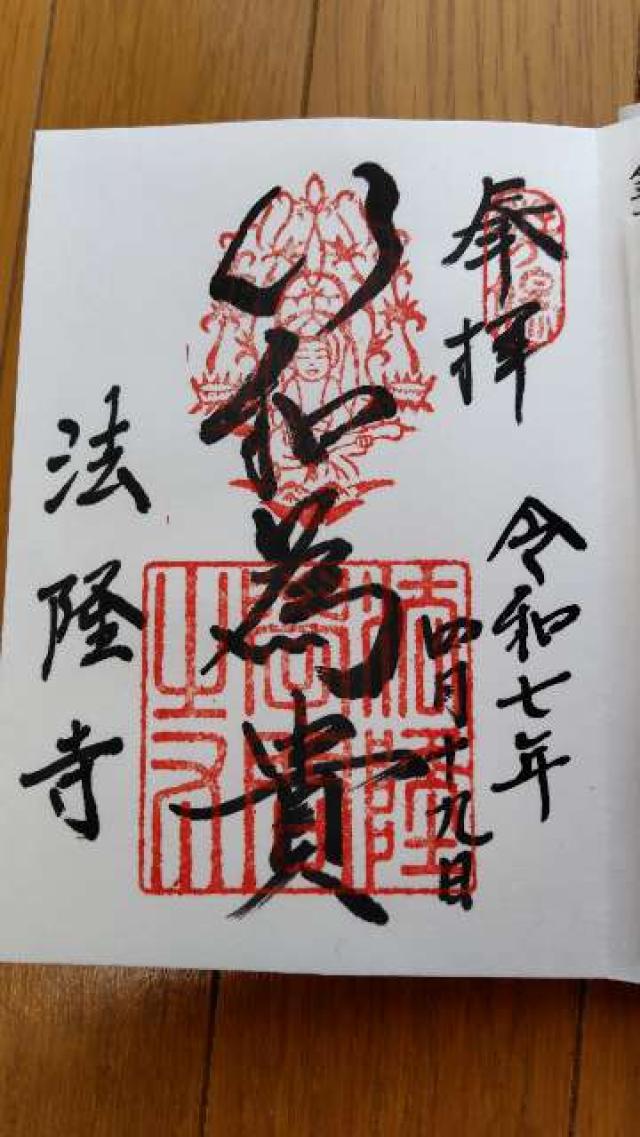 奉拝
令和七年
四月十九日
以和為貴
法隆寺